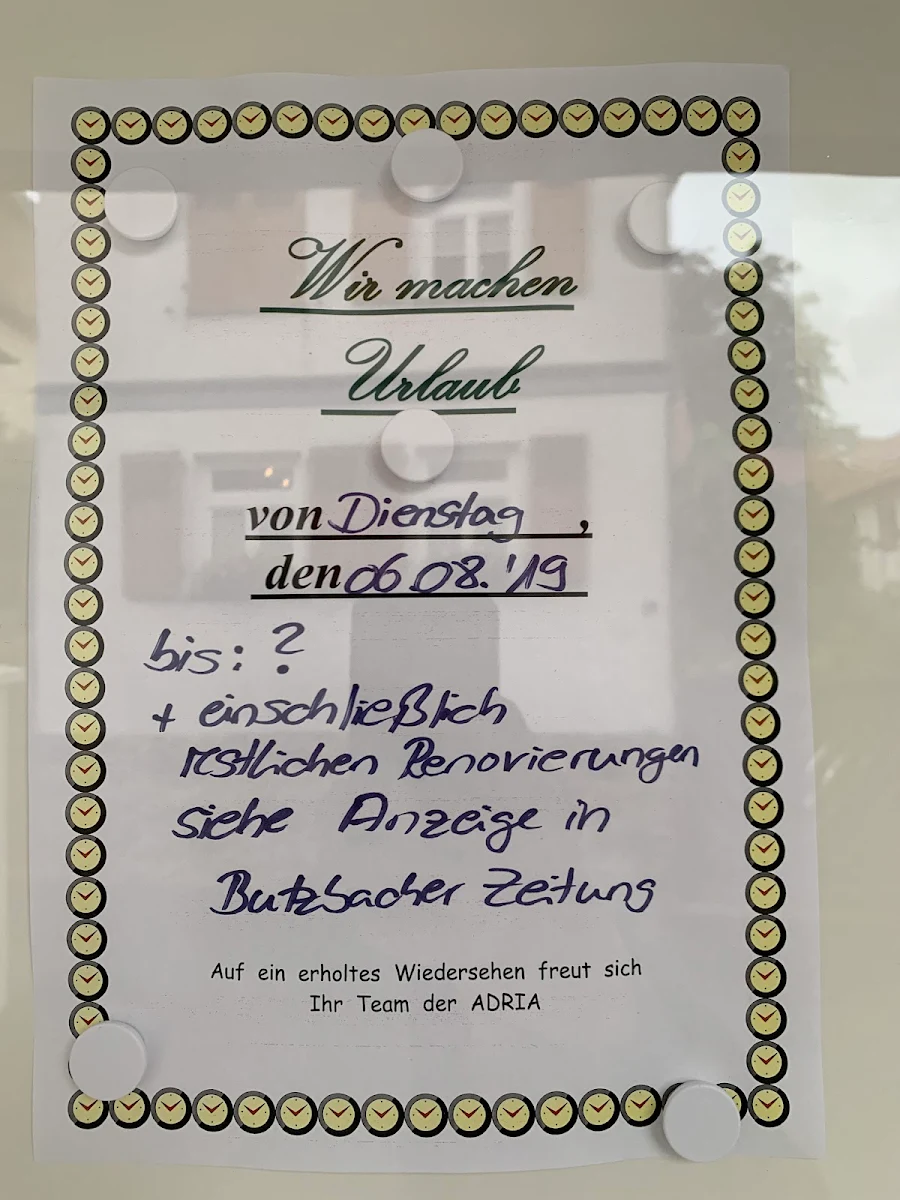 Wir machen
Urlaub
von Dienstag ,
den 06.08.'19
bis: ?
+ einschließlich
restlichen Renovierungen
siehe Anzeige in
Butzbacher Zeitung
Auf ein erholtes Wiedersehen freut sich
Ihr Team der ADRIA